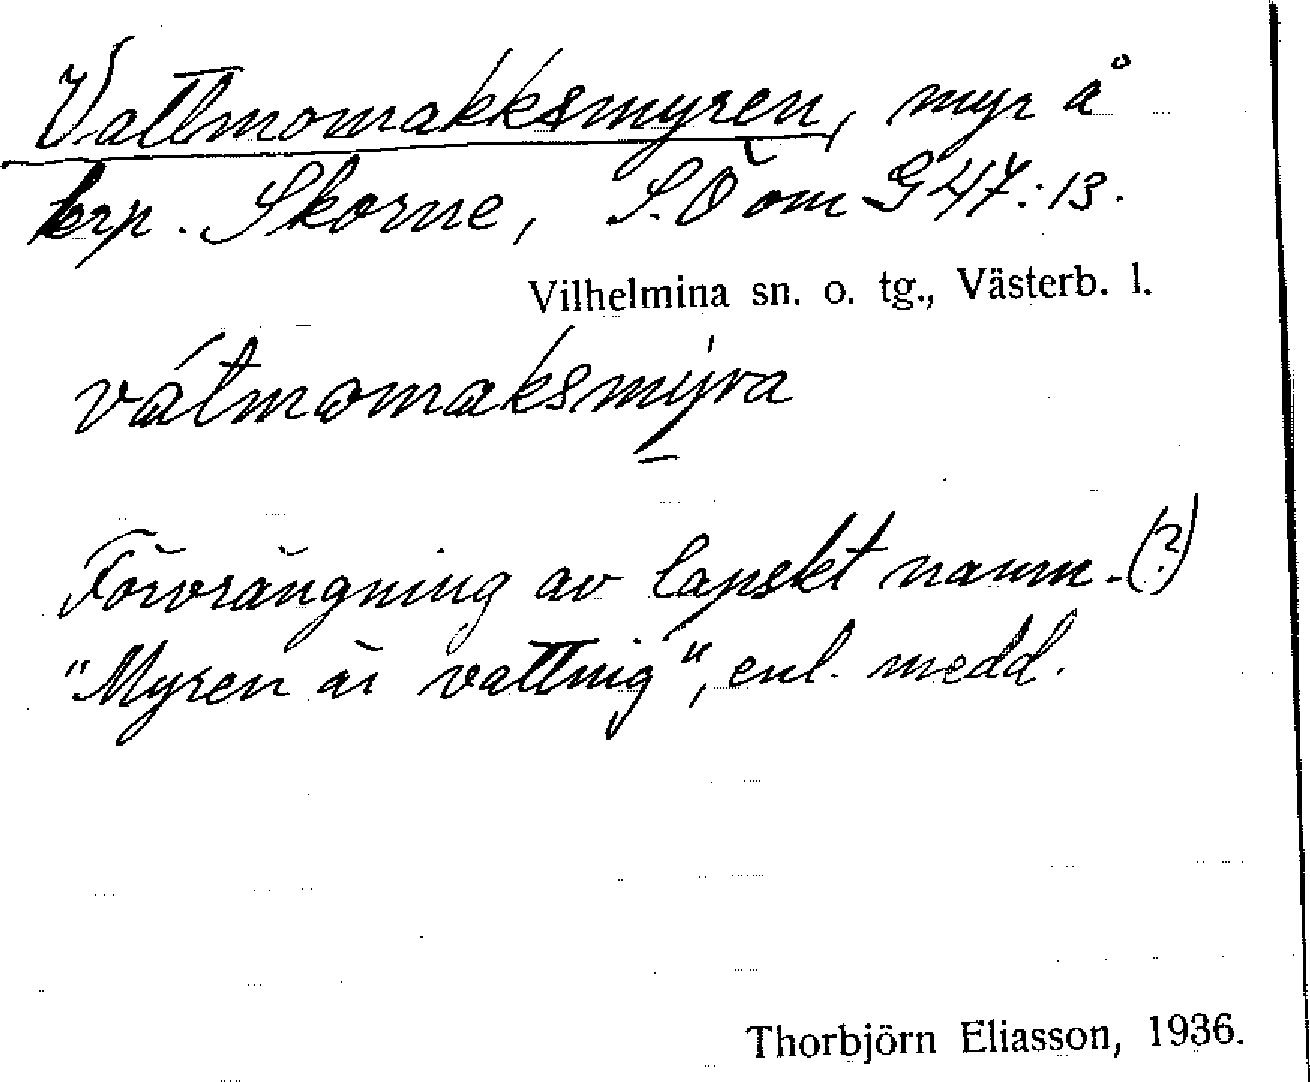 Vattmomakksmyren, myr å
krp. Skorne, S.Ö om G47:13.
Vilhelmina sn. o. tg., Västerb. l.
vátmomaksmýra
Förvrängning av lapskt namn.(?)
"Myren är vattnig", enl. medd.
Thorbjörn Eliasson, 1936.